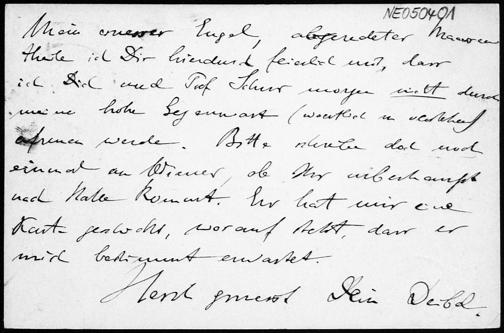 NE050401
Mein Engel, abgeredeter
theile ich Dir hierdurch feierlich mit, dass
ich Dich und Prof. Schur morgen nicht durch
meine hohe Gegenwart (woertlich zu verstehen)
erfreuen werde. Bitte schreibe doch noch
einmal an Wiener, ob Ihr ueberhaupt
nach Halle kommt. Er hat mir eine
Karte geschickt, worauf steht, dass er
mich bestimmt erwartet.
Herzl. gruesst Dein